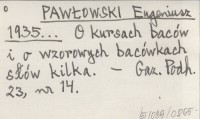 PAWŁOWSKI Eugeniusz
1935... O kursach baców
i o wzorowych bacówkach
słów kilka. – Gaz. Podh.
23, nr 14.